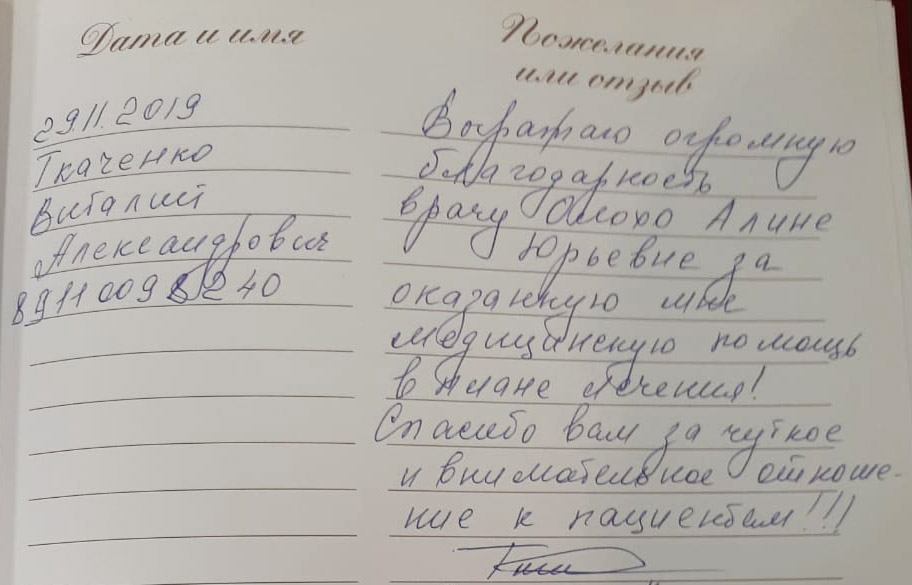 Дата и имя
29.11.2019
Ткаченко
Виталий
Александрович
Пожелания
или отзыв
Выражаю огромную
благодарность
врачу Алине
Юрьевне за
оказанную мне
медицинскую помощь
в плане лечения!
Спасибо вам за чуткое
и внимательное отноше-
ние к пациентам!!!